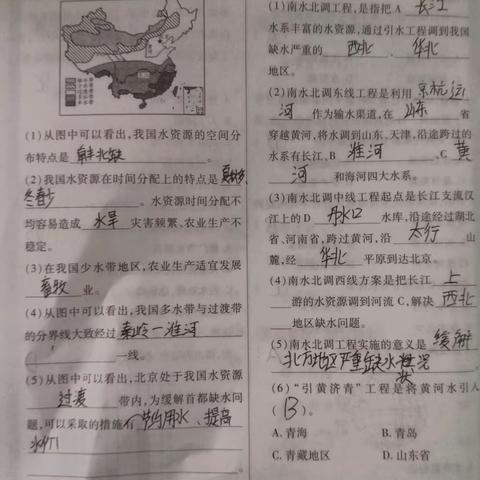 (1)从图中可以看出,我国水资源的空间分
布特点是 南丰北缺 。
(2)我国水资源在时间分配上的特点是 夏秋多
冬春少 。水资源时间分配不
均容易造成 水旱 灾害频繁、农业生产不
稳定。
(3)在我国少水带地区,农业生产适宜发展
畜牧 业。
(4)从图中可以看出,我国多水带与过渡带
的分界线大致经过 秦岭一淮河
一线。
(5)从图中可以看出,北京处于我国水资源
过渡 带内,为缓解首都缺水问
题,可以采取的措施 节约用水、提高
水价 。
(1)南水北调工程,是指把 A 长江
水系丰富的水资源,通过引水工程调到我国
缺水严重的 西北 、 华北
地区。
(2)南水北调东线工程是利用 京杭运
河 作为输水渠道,在 山东 省
穿越黄河,将水调到山东、天津,沿途跨过的
水系有长江、B 淮河 、C 黄
河 和海河四大水系。
(3)南水北调中线工程起点是长江支流汉
江上的 D 丹江口 水库,沿途经过湖北
省、河南省,跨过黄河,沿 太行 山
麓,经 华北 平原到达北京。
(4)南水北调西线方案是把长江 上
游的水资源调到河流 C,解决 西北
地区缺水问题。
(5)南水北调工程实施的意义是 缓解
北方地区严重缺水状况
(6)“引黄济青”工程是将黄河水引入
( B )。
A. 青海 B. 青岛
C. 青藏地区 D. 山东省